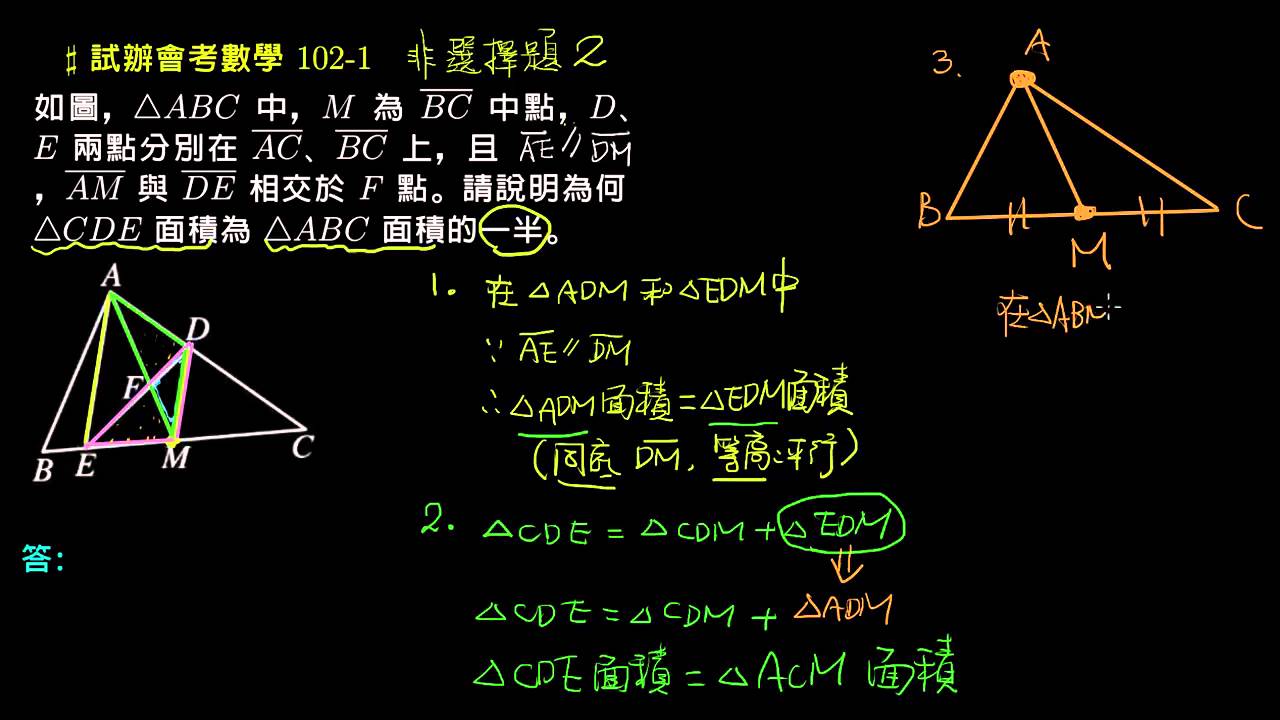 # 試辦會考數學 102-1 非選擇題 2
如圖，△ABC 中，M 為 BC 中點，D、
E 兩點分別在 AC、BC 上，且 AE // DM
，AM 與 DE 相交於 F 點。請說明為何
△CDE 面積為 △ABC 面積的一半。
A
D
F
B
E
M
C
答：
1. 在 △ADM 和 △EDM中
∵ AE // DM
∴ △ADM面積 = △EDM面積
(同底 DM, 等高∵平行)
2. △CDE = △CDM + △EDM
⇓
△CDE = △CDM + △ADM
△CDE面積 = △ACM 面積
3.
A
B
C
M
在△ABM